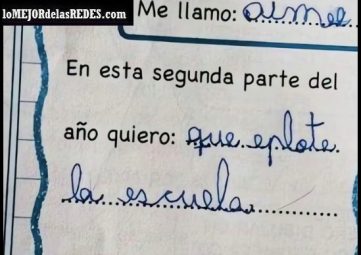 loMEJORdelasREDES.com
Me llamo: aimee
En esta segunda parte del
año quiero: que eplote
la escuela